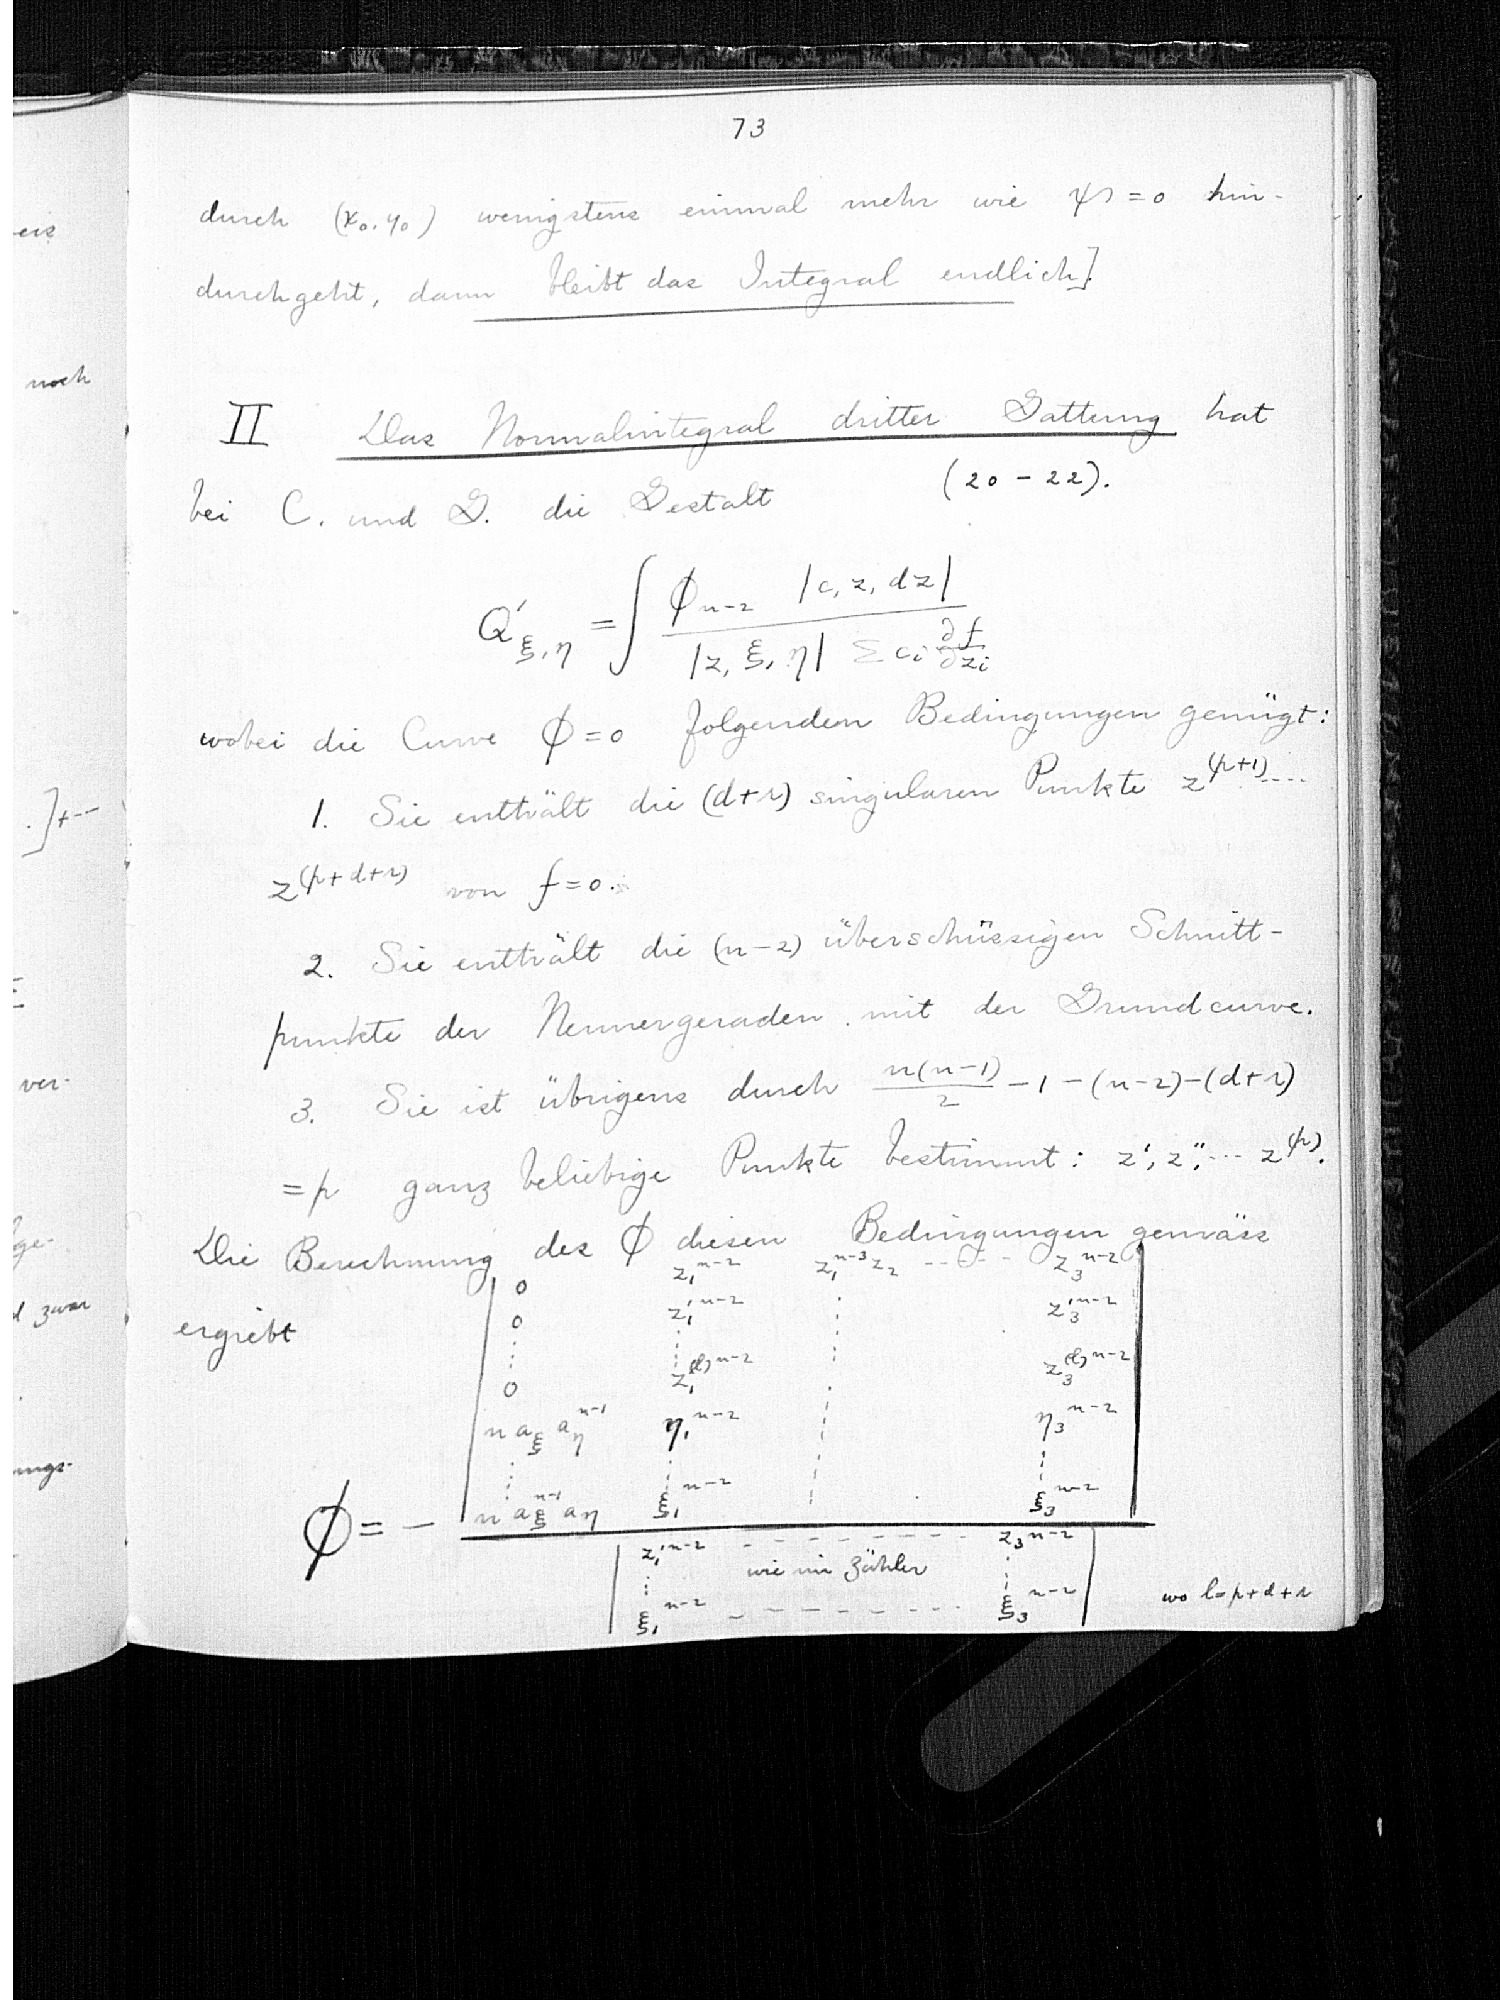 73
durch (x₀, y₀) wenigstens einmal mehr wie ψ = 0 hin-
durchgeht, dann bleibt das Integral endlich].
II Das Normalintegral dritter Gattung hat
bei C. und G. die Gestalt (20 - 22).
Q'_{ξ,η} = ∫ \frac{ϕ_{n-2} |c, z, dz|}{|z, ξ, η| Σ c_i \frac{∂f}{∂z_i}}
wobei die Curve ϕ = 0 folgenden Bedingungen genügt:
1. Sie enthält die (d+r) singulären Punkte z^{(p+1)} ....
z^{(p+d+r)} von f = 0.
2. Sie enthält die (n-2) überschüssigen Schnitt-
punkte der Nennergeraden mit der Grundcurve.
3. Sie ist übrigens durch \frac{n(n-1)}{2} - 1 - (n-2) - (d+r)
= p ganz beliebige Punkte bestimmt: z', z'', ... z^{(p)}.
Die Berechnung des ϕ diesen Bedingungen gemäss
ergiebt
0 z_1^{n-2} z_1^{n-3}z_2 ----- z_3^{n-2}
0 z_1'^{n-2} ⋮ z_3'^{n-2}
⋮ ⋮ ⋮
0 z_1^{(l) n-2} ⋮ z_3^{(l) n-2}
n a_ξ a_η^{n-1} η_1^{n-2} ⋮ η_3^{n-2}
⋮ ⋮ ⋮ ⋮
n a_ξ^{n-1} a_η ξ_1^{n-2} ⋮ ξ_3^{n-2}
ϕ = -
z_1'^{n-2} ----- z_3'^{n-2}
⋮ wie im Zähler ⋮
ξ_1^{n-2} ----- ξ_3^{n-2} wo l=p+d+r
eis
noch
.]+---
ver-
ge-
d zwar
ungs-